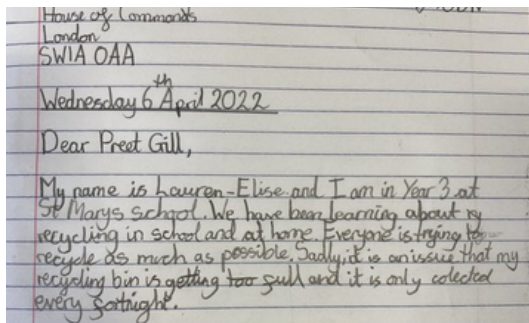 House of Commands
London
SW1A OAA
Wednesday 6th April 2022
Dear Preet Gill,
My name is Lauren-Elise and I am in Year 3 at
St Marys school. We have been learning about ry
recycling in school and at home. Everyone is trying to
recycle as much as possible. Sadly, it is an issue that my
recycling bin is getting too full and it is only colected
every fortnight.